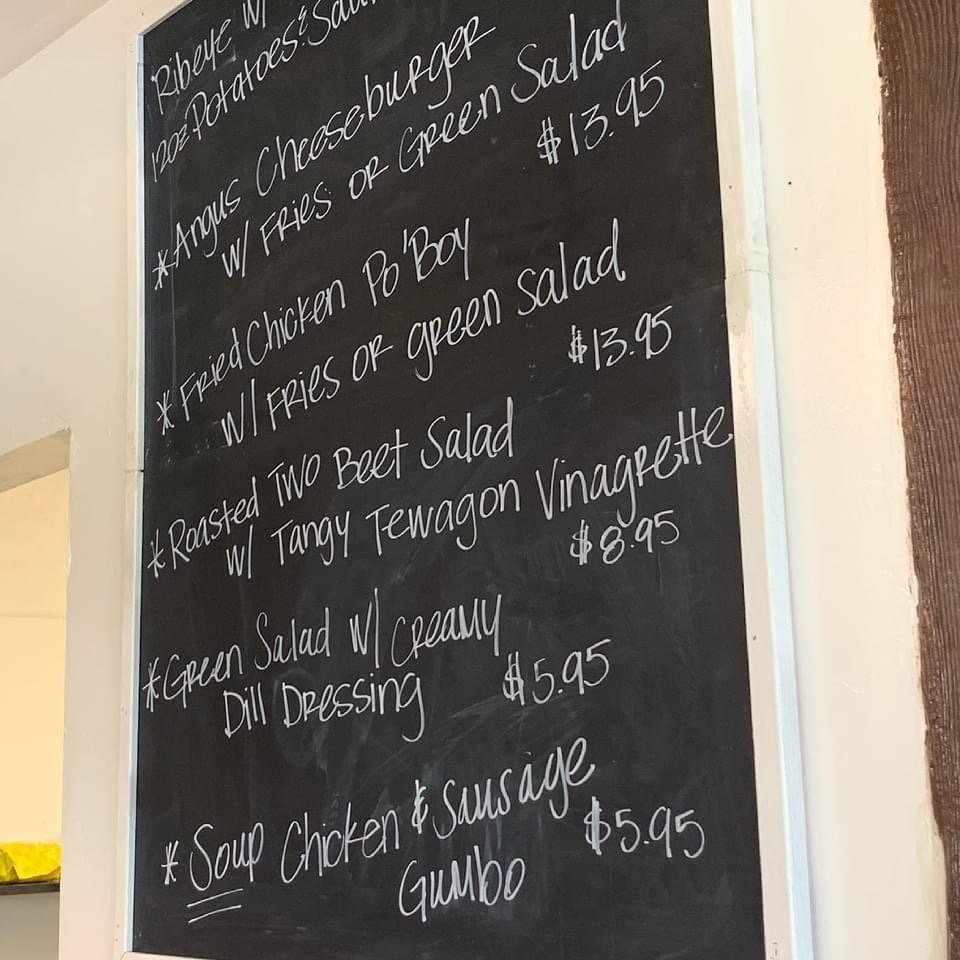 Ribeye w/
12oz Potatoes &
*Angus Cheeseburger
w/ Fries or Green Salad
$13.95
*Fried Chicken Po'Boy
w/ Fries or green salad
$13.95
*Roasted Two Beet Salad
w/ Tangy Tewagon Vinagrette
$8.95
*Green Salad w/ Creamy
Dill Dressing $5.95
* Soup Chicken & Sausage
Gumbo $5.95